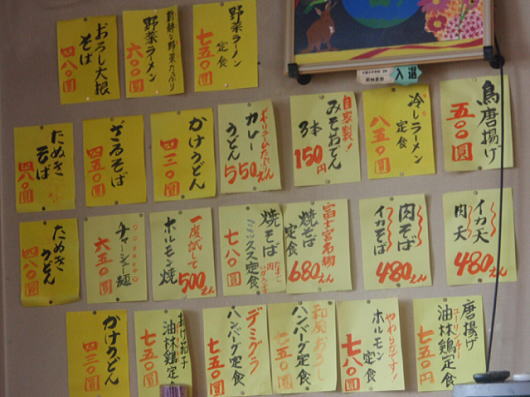 入選
おろし大根
そば
四八〇圓
新鮮な野菜たっぷり
野菜ラーメン
六〇〇圓
野菜ラーメン
定食
七五〇圓
たぬき
そば
四八〇圓
ざるそば
四五〇圓
かけうどん
四三〇圓
ボリュームたっぷり
カレー
うどん
550えん
自家製!
みそおでん
3本
150円
冷しラーメン
定食
八五〇圓
鳥唐揚げ
五〇〇圓
たぬき
うどん
四八〇圓
チャーシュー麺
六五〇圓
一度試して
ホルモン焼
500えん
焼そば
ミックス定食
七八〇圓
富士宮名物
焼そば
定食
680えん
肉そば
イカそば
480えん
イカ天
肉天
480えん
かけうどん
四三〇圓
油林鶏定食
七五〇圓
デミグラ
ハンバーグ定食
七五〇圓
和風おろし
ハンバーグ定食
七五〇圓
やわらかです!
ホルモン
定食
七八〇圓
唐揚げ
ユーリンチー
油林鶏定食
七五〇円